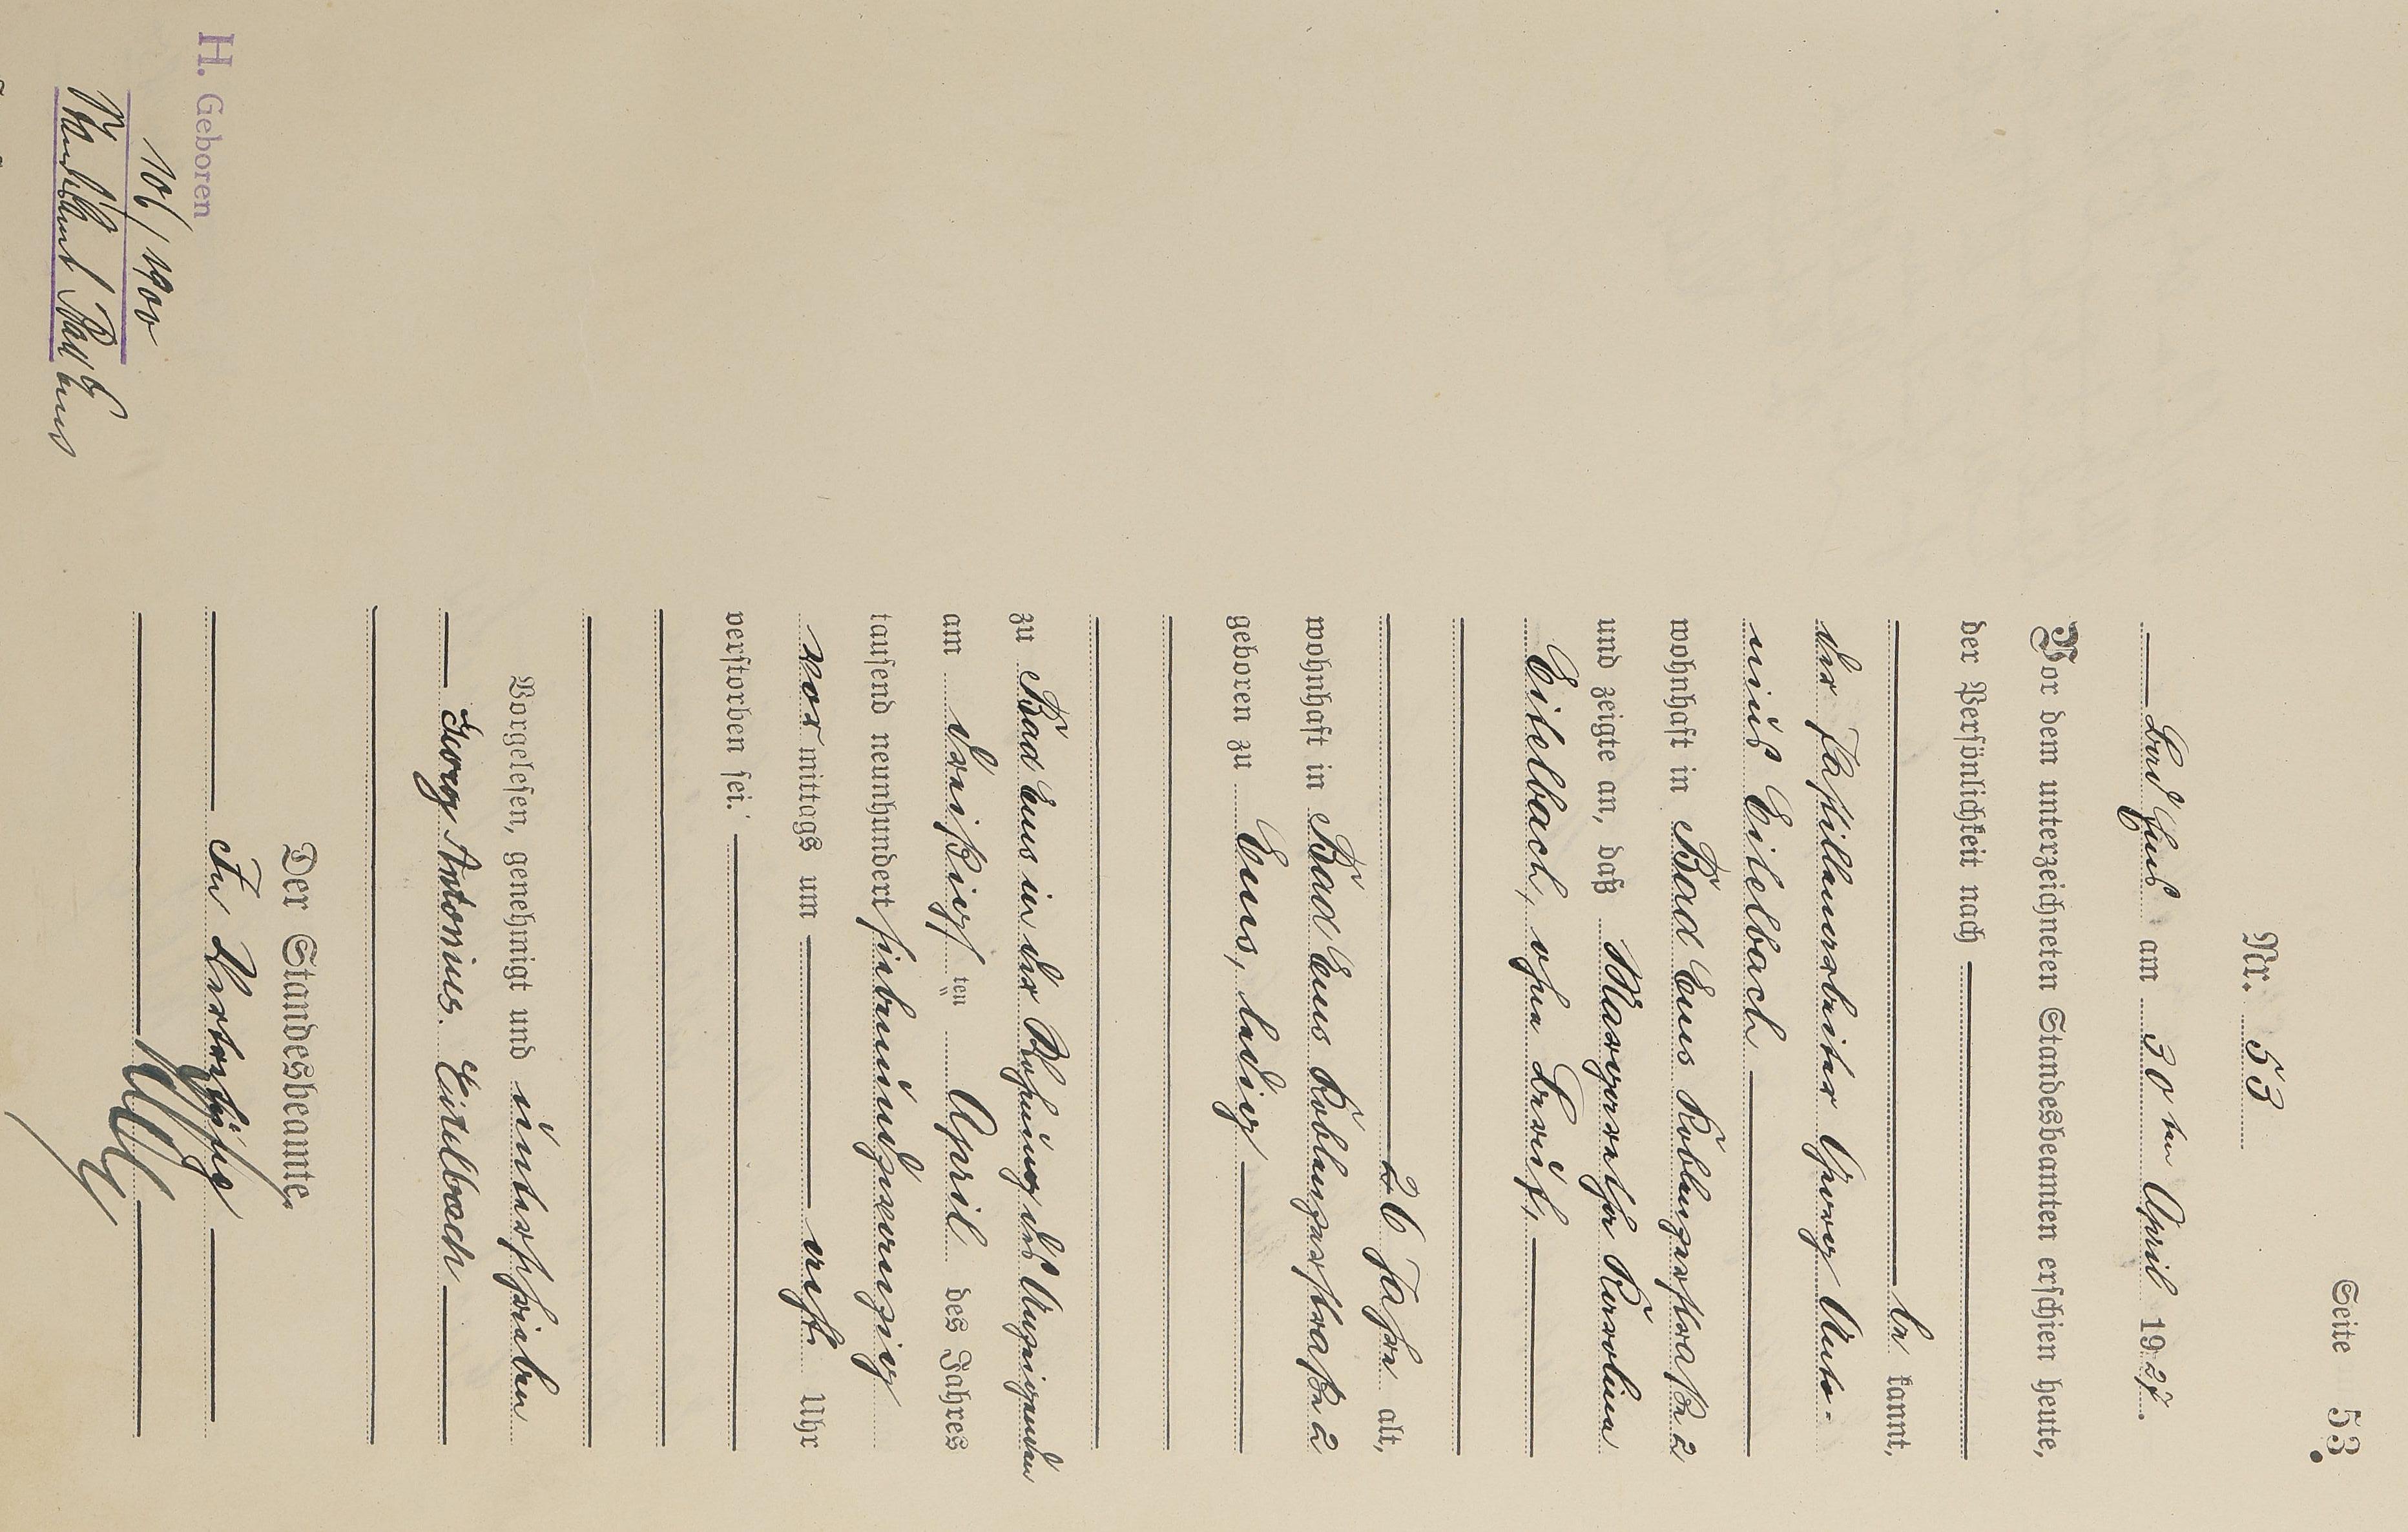 Seite 53.
Nr. 53
Bad Ems am 30ten April 1927.
Vor dem unterzeichneten Standesbeamten erschien heute,
der Persönlichkeit nach
be kannt,
der Fabrikarbeiter Georg Anto-
nius Eitelbach
wohnhaft in Bad Ems Koblenzerstraße 2
und zeigte an, daß Margarethe Karoline
Eitelbach, ohne Beruf,
26 Jahre alt,
wohnhaft in Bad Ems Koblenzerstraße 2
geboren zu Ems, ledig
zu Bad Ems in der Wohnung des Anzeigenden
am dreißigsten April des Jahres
tausend neunhundert siebenundzwanzig
vor mittags um acht Uhr
verstorben sei.
Vorgelesen, genehmigt und unterschrieben
Georg Antonius Eitelbach
Der Standesbeamte.
In Vertretung
H. Geboren
106/1900
Standesamt Bad Ems